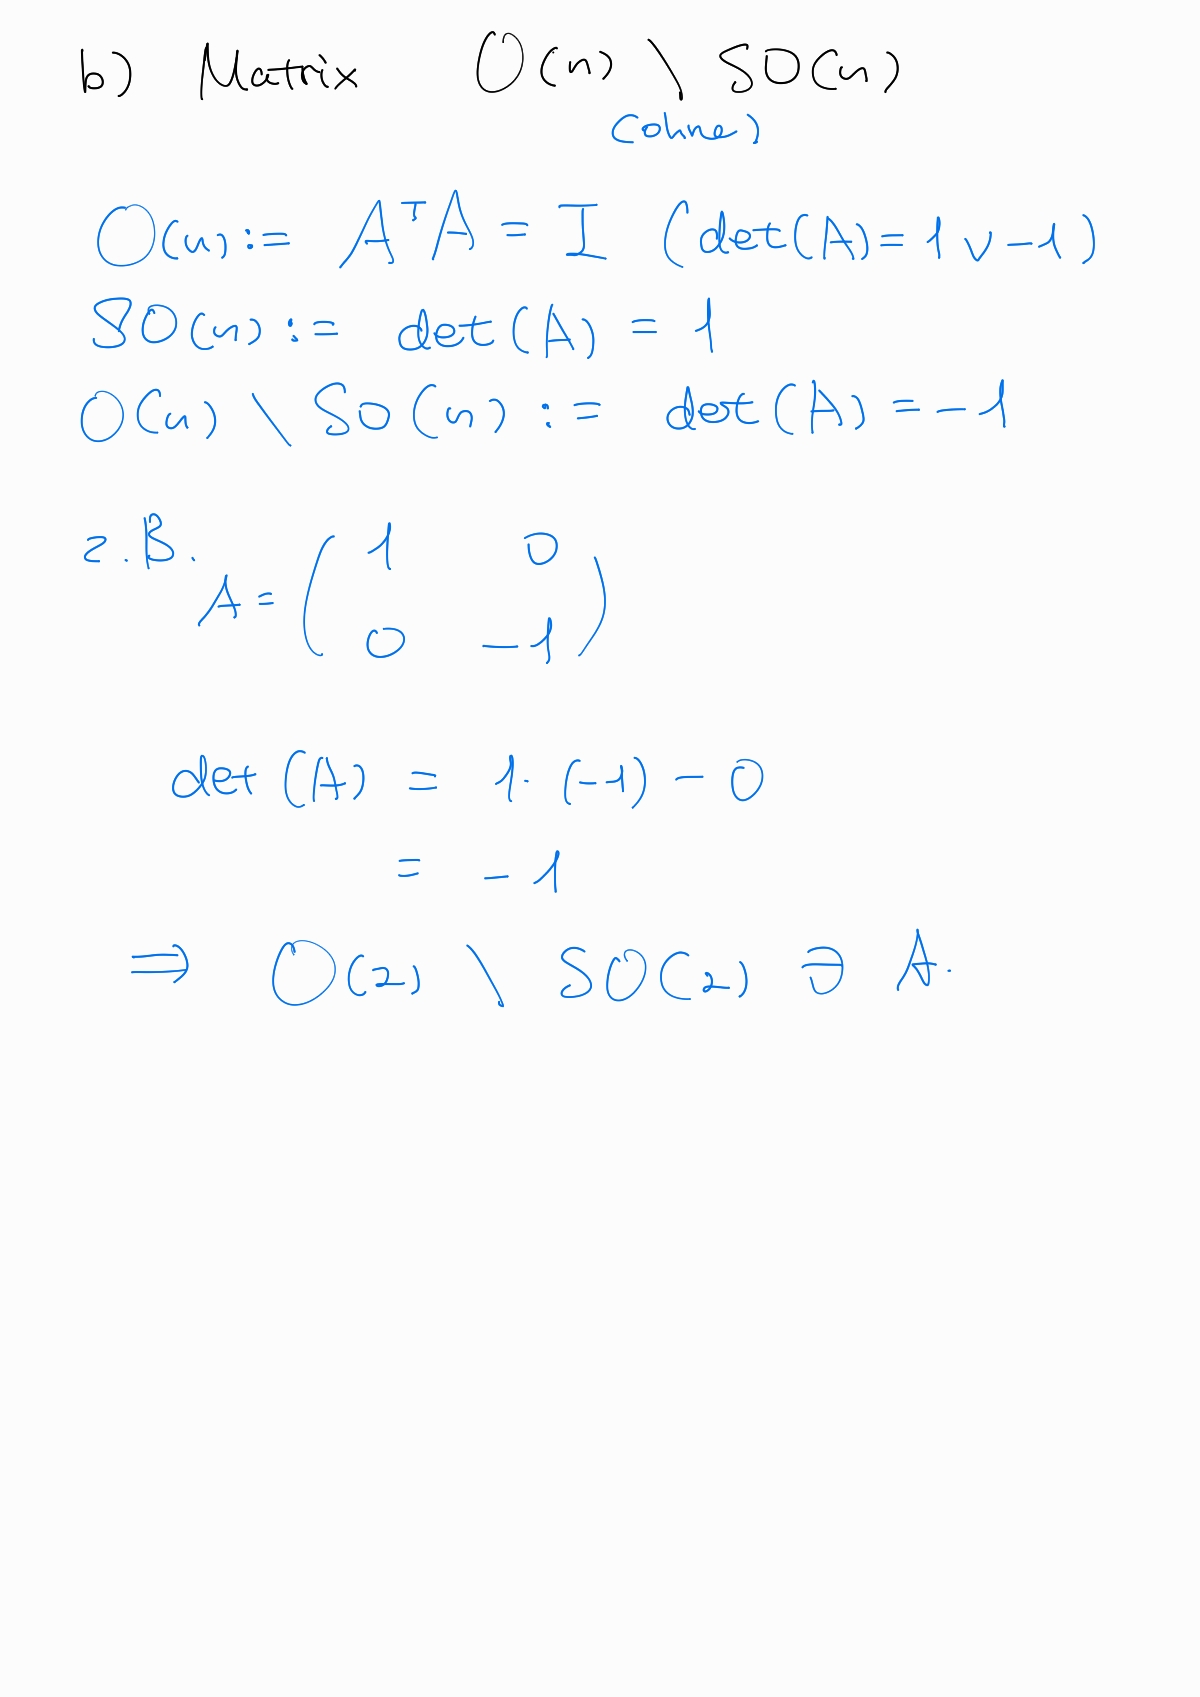 b) Matrix O(n) \ SO(n)
(ohne)
O(n) := AᵀA = I (det(A) = 1 ∨ -1)
SO(n) := det(A) = 1
O(n) \ SO(n) := det(A) = -1
z.B.
A = ( 1 0
0 -1 )
det(A) = 1 · (-1) - 0
= -1
⇒ O(2) \ SO(2) ∋ A.